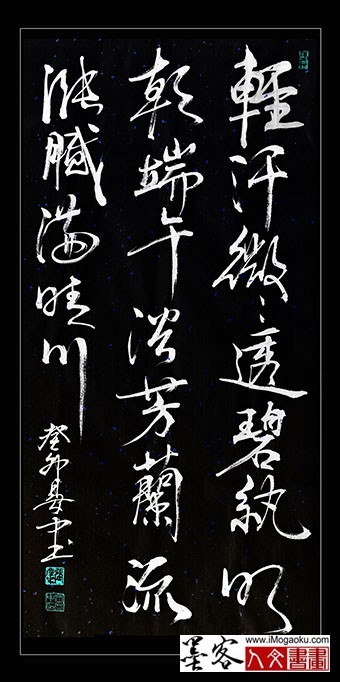 輕汗微〻透碧紈明
朝端午浴芳蘭流
漲膩滿晴川
癸卯
墨客
www.iMogaoku.com
人文書畫